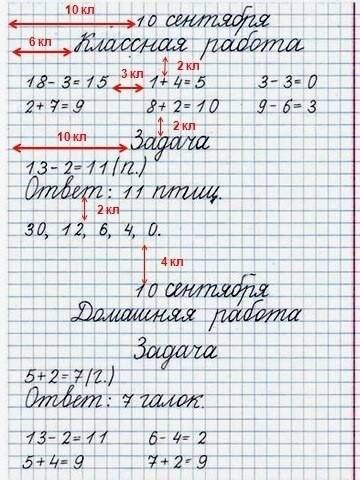 10 кл 10 сентября
6 кл Классная работа
2 кл
18-3=15 3 кл 1+4=5 3-3=0
2+7=9 8+2=10 9-6=3
2 кл
10 кл Задача
13-2=11(п.)
Ответ: 11 птиц.
2 кл
30, 12, 6, 4, 0.
4 кл
10 сентября
Домашняя работа
Задача
5+2=7(г.)
Ответ: 7 галок.
13-2=11 6-4=2
5+4=9 7+2=9